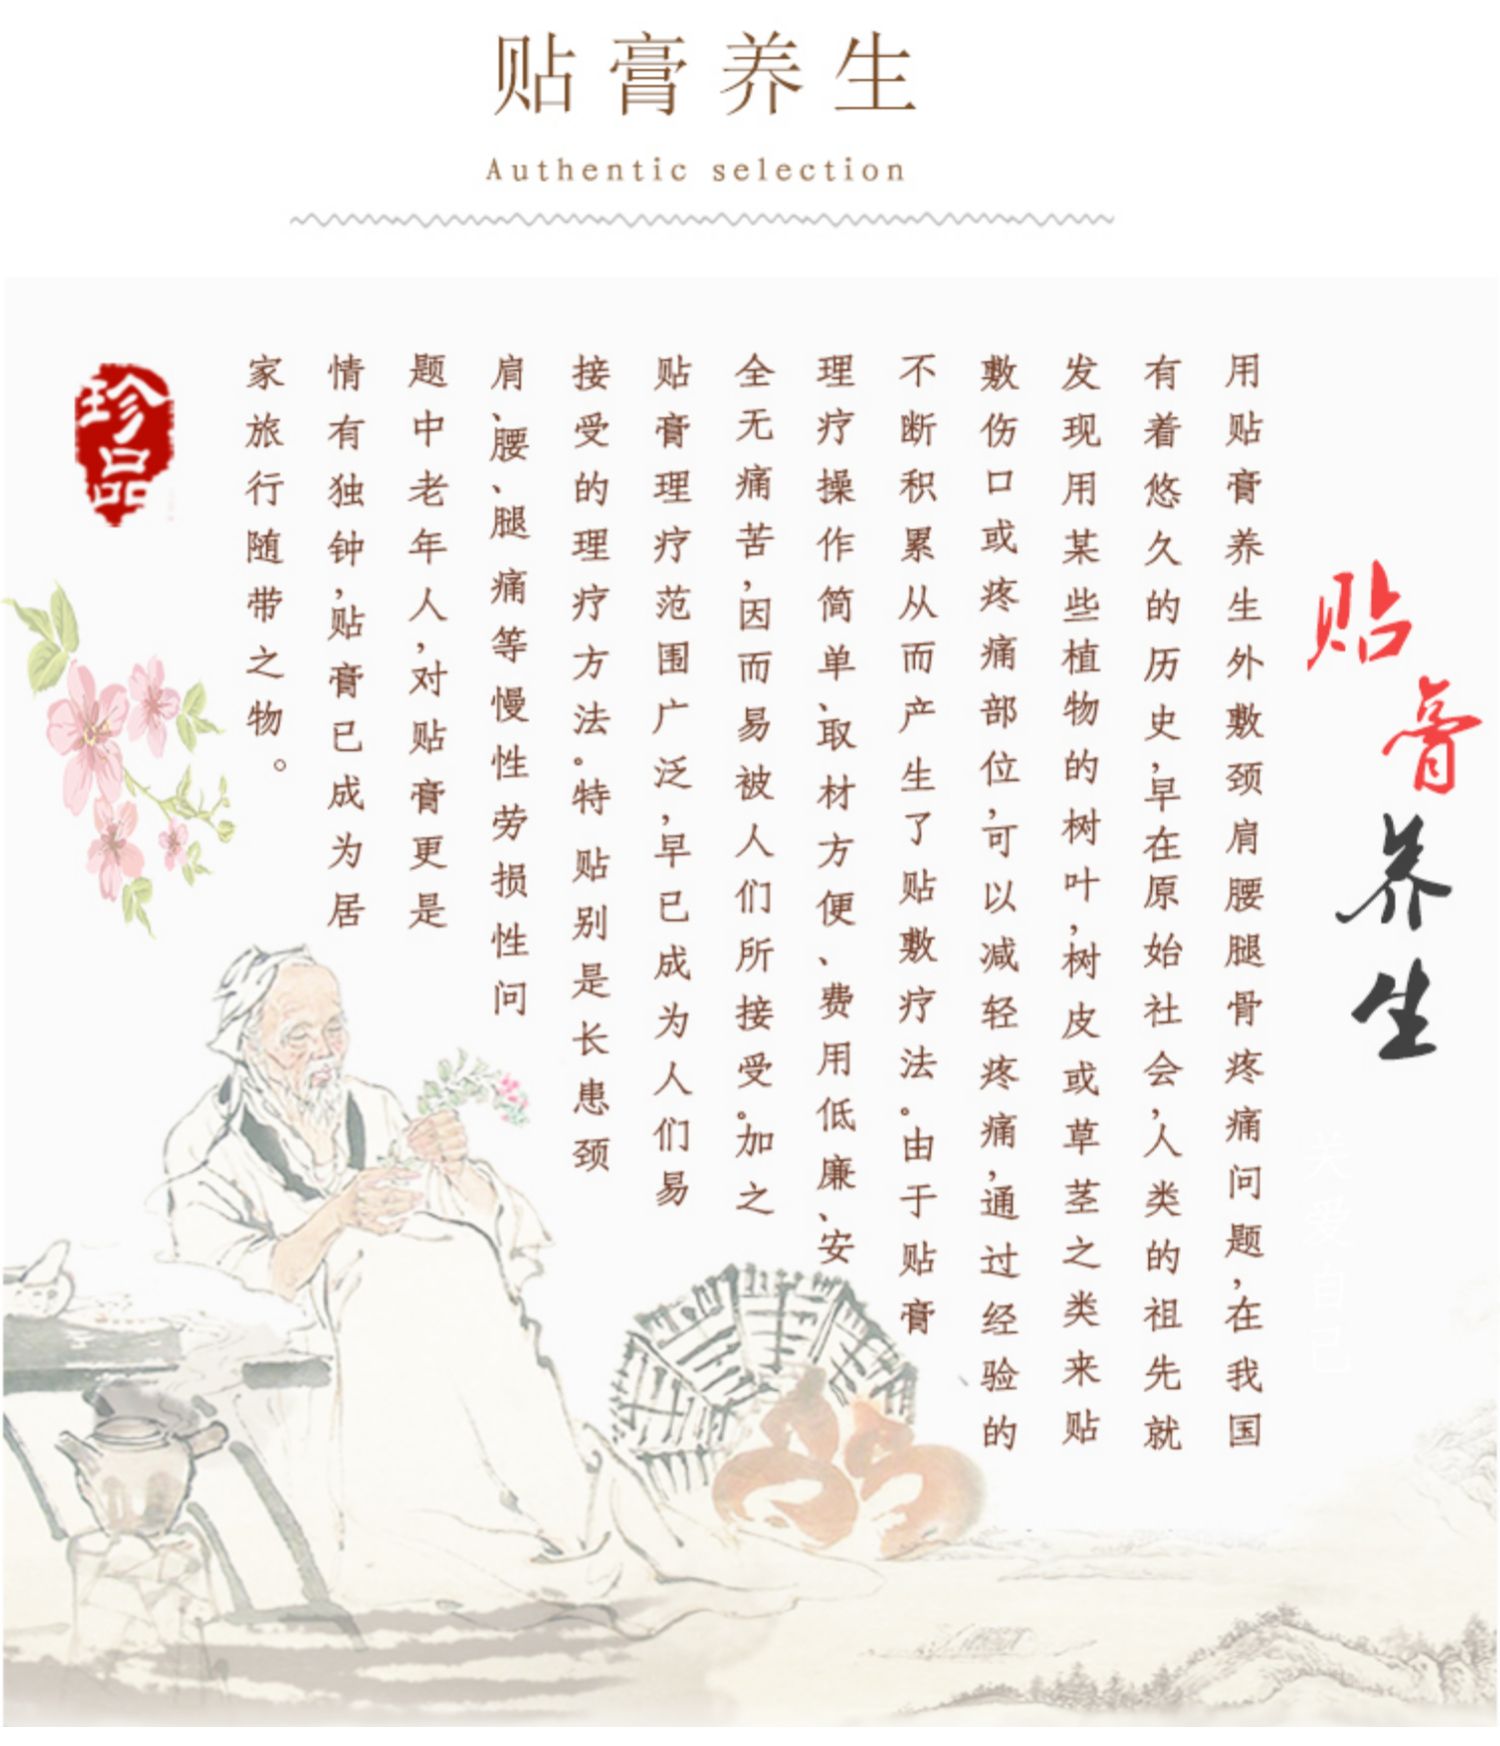 贴膏养生
Authentic selection
贴膏
养生
关爱自己
用贴膏养生外敷颈肩腰腿骨疼痛问题,在我国
有着悠久的历史,早在原始社会,人类的祖先就
发现用某些植物的树叶,树皮或草茎之类来贴
敷伤口或疼痛部位,可以减轻疼痛,通过经验的
不断积累从而产生了贴敷疗法。由于贴膏
理疗操作简单、取材方便、费用低廉、安
全无痛苦,因而易被人们所接受。加之
贴膏理疗范围广泛,早已成为人们易
接受的理疗方法。特 贴别是长患颈
肩、腰、腿 痛等慢性劳损性问
题中老年人,对贴膏更是
情有独钟,贴膏已成为居
家旅行随带之物。
珍品